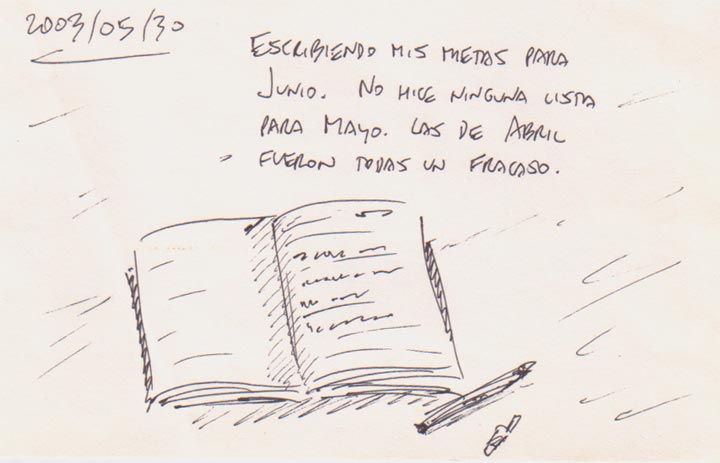 2003/05/30
ESCRIBIENDO MIS METAS PARA
JUNIO. NO HICE NINGUNA LISTA
PARA MAYO. LAS DE ABRIL
FUERON TODAS UN FRACASO.